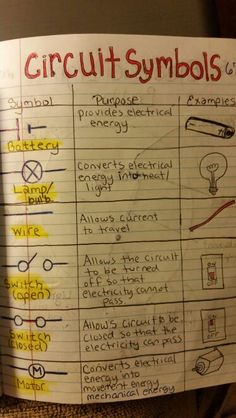 Circuit Symbols
Symbol
Purpose:
Examples
Battery
provides electrical
energy
Lamp/
bulb
Converts electrical
energy into heat/
light
Wire
Allows current
to travel
Switch
(open)
Allows the circuit
to be turned
off so that
electricity cannot
pass
Switch
(closed)
Allows circuit to be
closed so that the
electricity can pass
M
Motor
Converts electrical
energy into
movement energy
mechanical energy